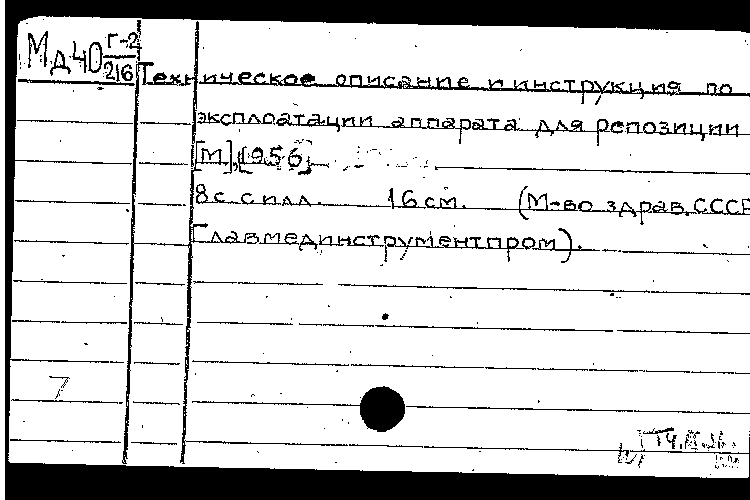 Мд40 Г-2/216
Техническое описание и инструкция по
эксплоатации аппарата для репозиции
[М], [1956]
8 с. с илл. 16 см. (М-во здрав. СССР
Главмединструментпром).
7